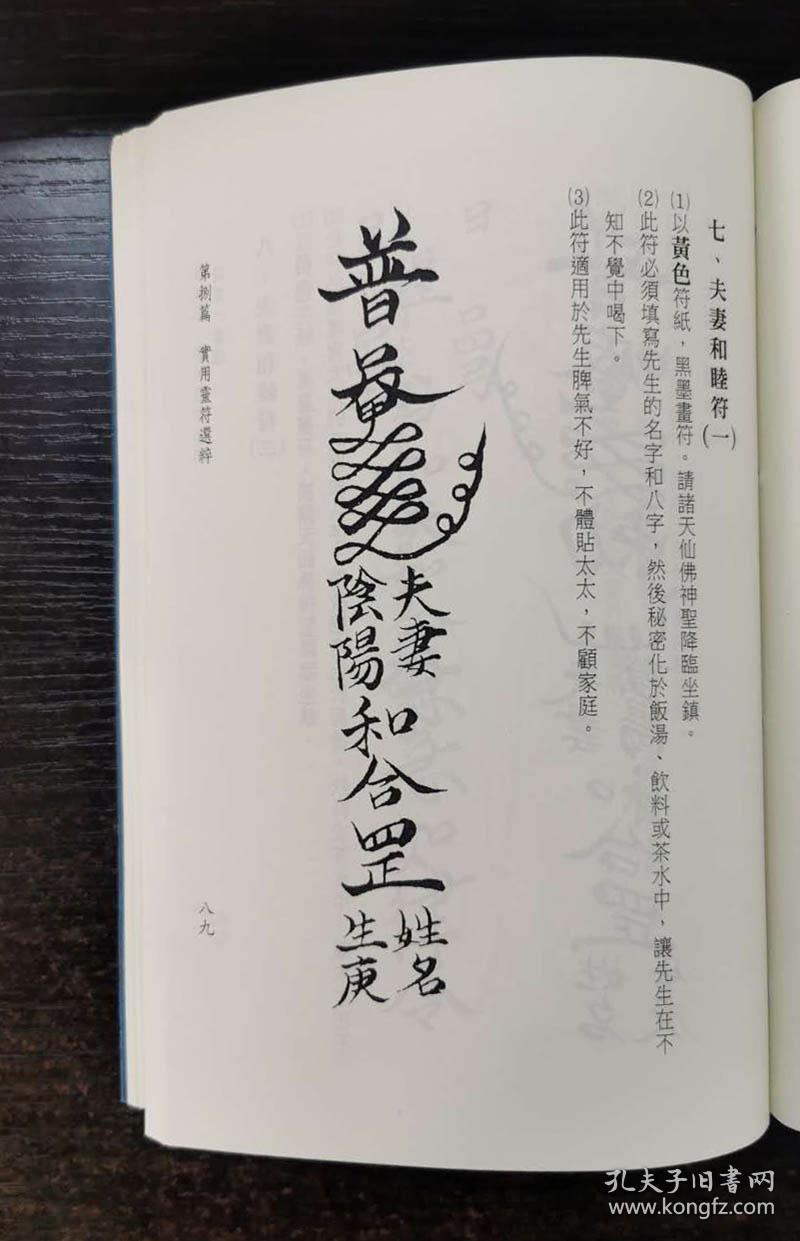 七、夫妻和睦符(一)
(1)以黃色符紙，黑墨畫符。請諸天仙佛神聖降臨坐鎮。
(2)此符必須填寫先生的名字和八字，然後秘密化於飯湯、飲料或茶水中，讓先生在不
知不覺中喝下。
(3)此符適用於先生脾氣不好，不體貼太太，不顧家庭。
普
夫妻
陰陽
和合罡
姓名
生庚
第捌篇 實用靈符選粹
八九
孔夫子旧书网
www.kongfz.com